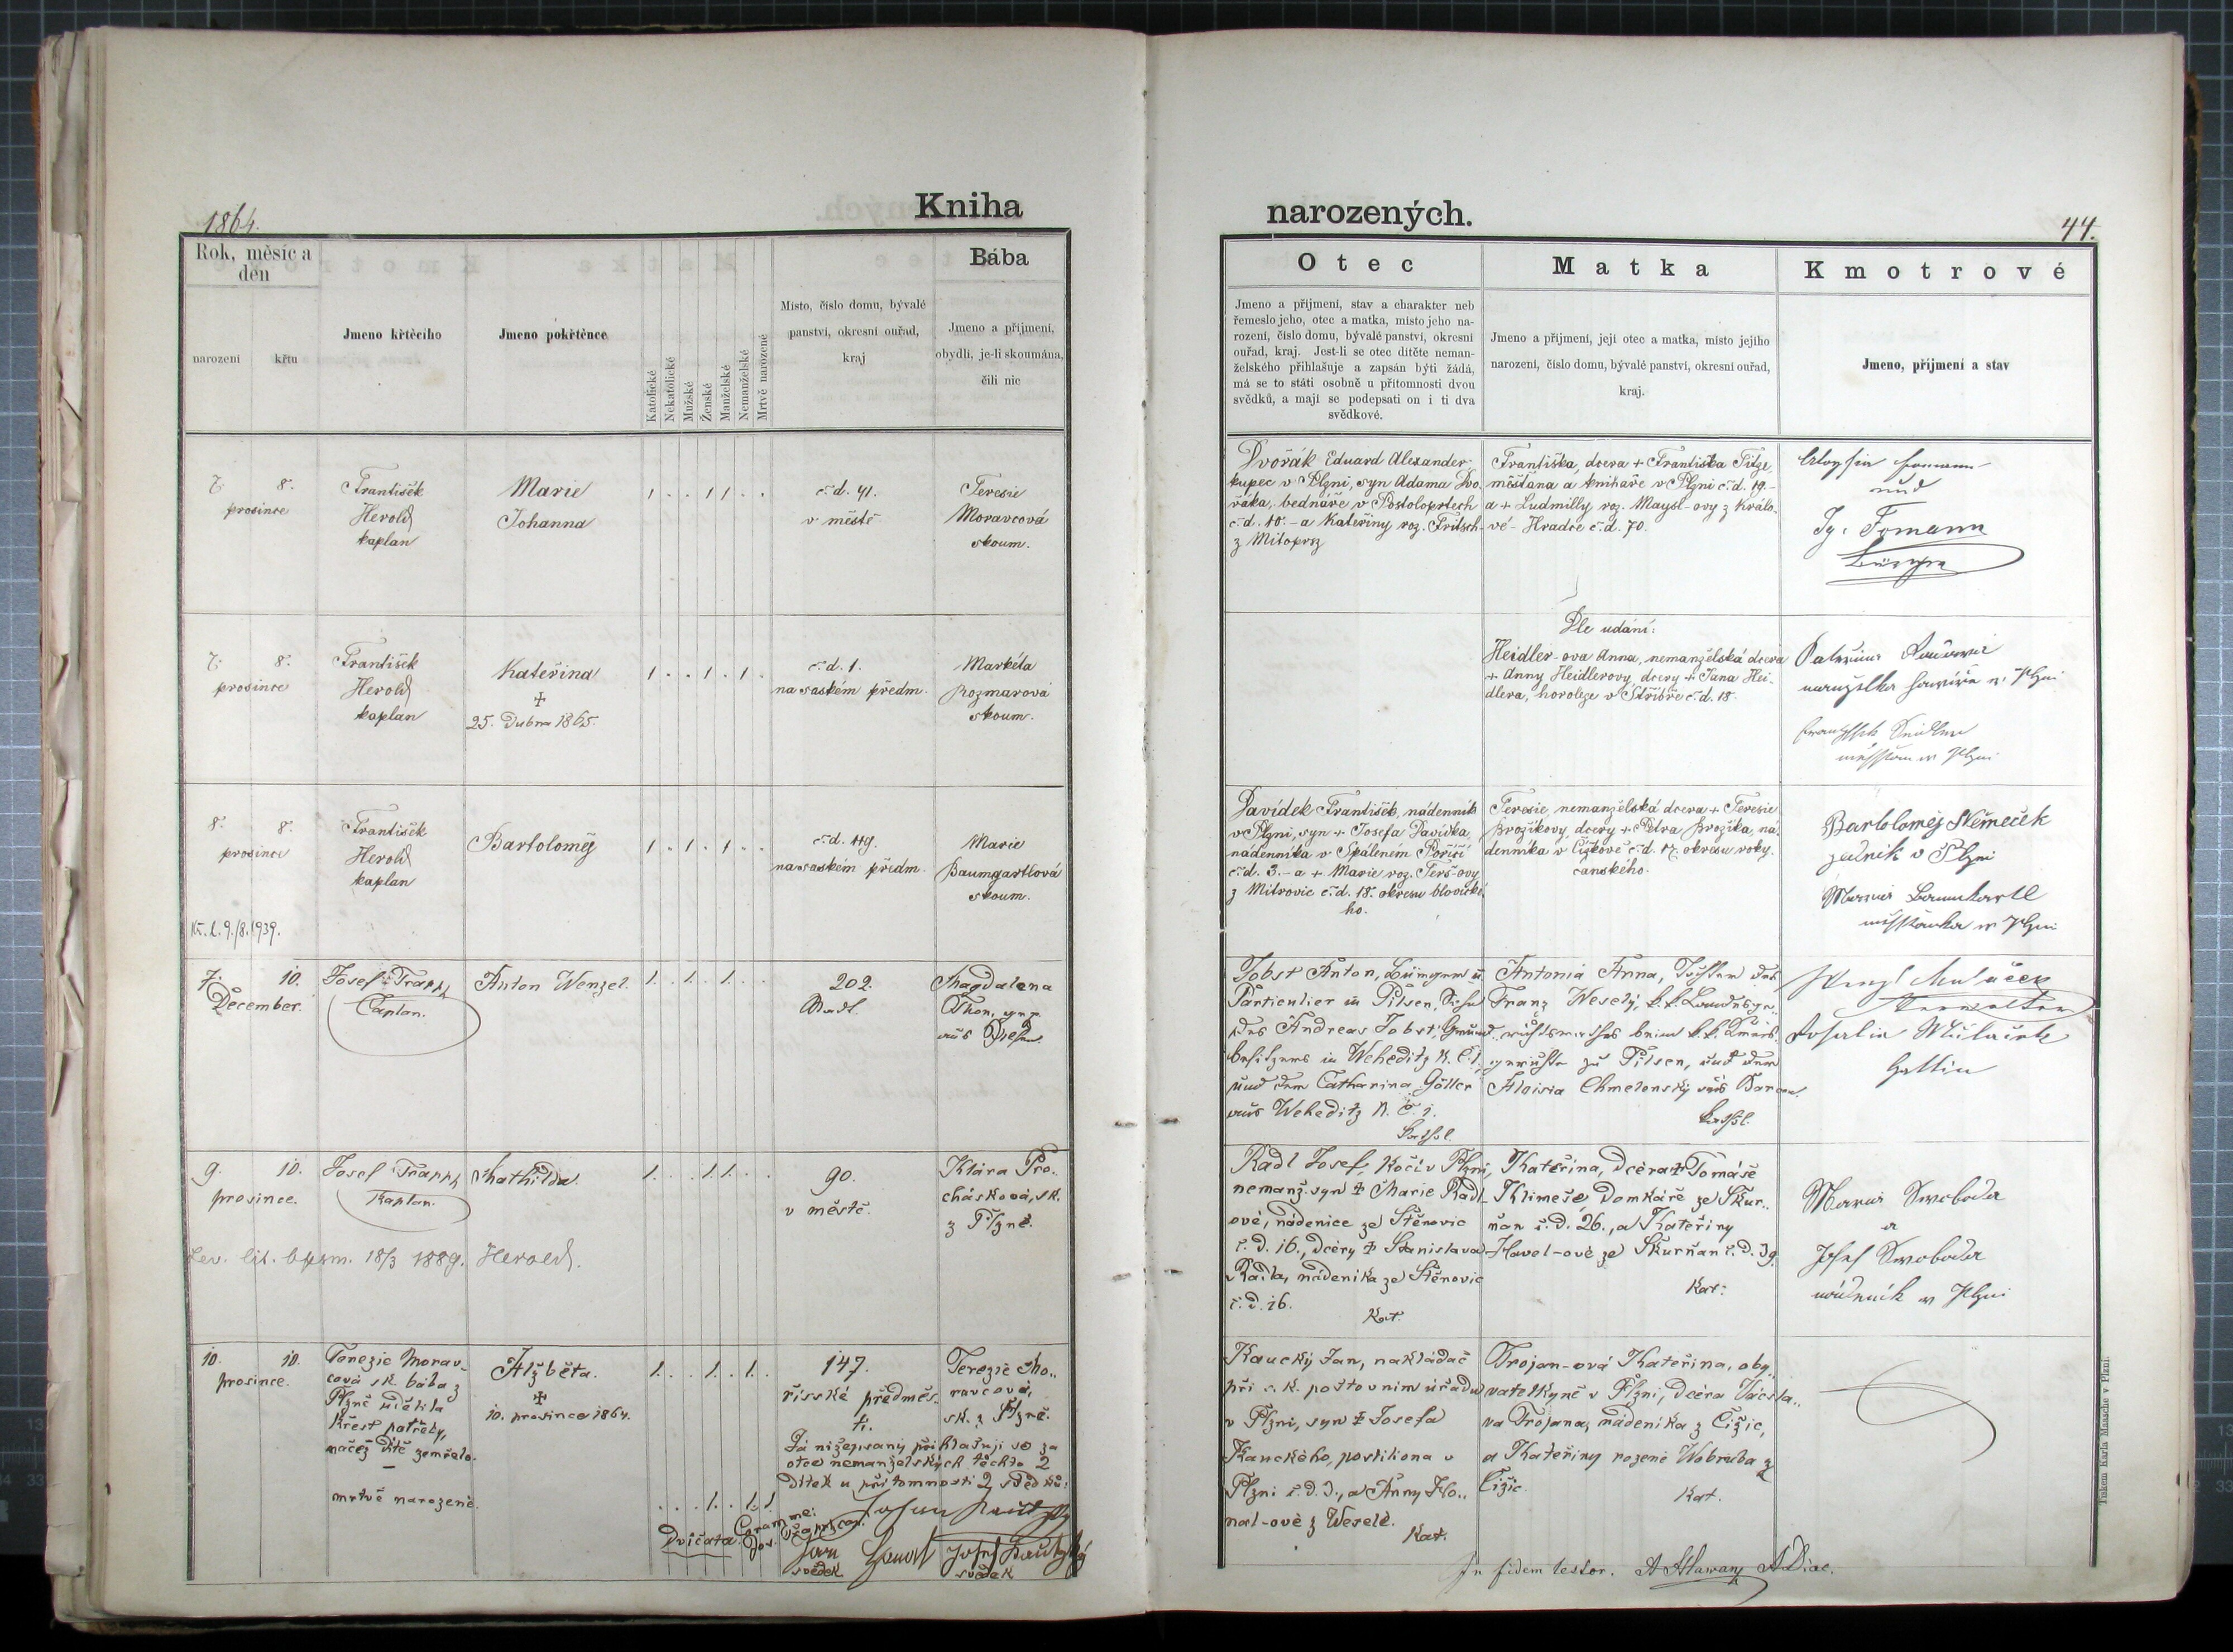 1864.
Kniha
Rok, měsíc a
den
narození
křtu
Jmeno křtěcího
Jmeno pokřtěnce
Katolické
Nekatolické
Mužské
Ženské
Manželské
Nemanželské
Mrtvě narozené
Místo, číslo domu, bývalé
panství, okresní ouřad,
kraj
Bába
Jmeno a příjmení,
obydlí, je-li skoumána,
čili nic
7. 8.
prosince
František
Herold
kaplan
Marie
Johanna
1 . . 1 1 . .
č. d. 41.
v městě
Teresie
Moravcová
skoum.
7. 8.
prosince
František
Herold
kaplan
Kateřina
+
25. Dubna 1865.
1 . . 1 . 1 .
č. d. 1.
na saském předm.
Markéta
Rozmarová
skoum.
8. 8.
prosince
František
Herold
kaplan
Bartoloměj
1 . 1 . 1 . .
č. d. 119.
na saském předm.
Marie
Baumgartlová
skoum.
9./8. 1939.
7. 10.
December.
Josef Trapp
Caplan.
Anton Wenzel.
1 . 1 . 1 . .
202.
Stadt.
Magdalena
Thon, gep.
aus Pilsen.
9. 10.
prosince.
Josef Trapp
Kaplan.
Mathilda.
1 . . 1 1 . .
90.
v městě.
Klára Pro..
chásková, sk.
z Plzně.
Lev. lit. bapsm. 18/3 1889. Herold.
10. 10.
prosince.
Terezie Morav-
cová sk. bába z
Plzně udělila
křest potřeby,
načež dítě zemřelo.
mrtvě narozené.
Alžběta.
+
10. prosince 1864.
1 . . 1 . 1 .
147.
říšské předměs-
tí.
Terezie Mo..
ravcová,
sk. z Plzně.
Já nížepsaný přihlašuji se za
otce nemanželských těchto 2
dítek u přítomnosti 2 svědků:
. . . 1 . 1 1
Dvojčata.
Jan
svědek
Josef
svědek
narozených.
44.
Otec
Jmeno a příjmení, stav a charakter neb
řemeslo jeho, otec a matka, místo jeho na-
rození, číslo domu, bývalé panství, okresní
ouřad, kraj. Jest-li se otec dítěte neman-
želského přihlašuje a zapsán býti žádá,
má se to státi osobně u přítomnosti dvou
svědků, a mají se podepsati on i ti dva
svědkové.
Matka
Jmeno a příjmení, její otec a matka, místo jejího
narození, číslo domu, bývalé panství, okresní ouřad,
kraj.
Kmotrové
Jmeno, příjmení a stav
Dvořák Eduard Alexander,
kupec v Plzni, syn Adama Dvo-
řáka, bednáře v Postoloprtech
č. d. 10. - a Kateřiny roz. Fritsch
z Mitoprsz
Františka, dcera + Františka Fitze,
měšťana a knihaře v Plzni č. d. 19. -
a + Ludmilly roz. Maysl-ovy z Králo-
vé-Hradce č. d. 70.
und
Ig. Tomann
Bürger
Dle udání:
Heidler-ova Anna, nemanželská dcera
+ Anny Heidlerovy, dcery + Jana Hei-
dlera, horolezce v Stříbře č. d. 18.
v Plzni
v Plzni
Davídek František, nádenník
v Plzni, syn + Josefa Davídka,
nádenníka v Spáleném Poříčí
č. d. 3. - a + Marie roz. Terš-ovy
z Mitrovic č. d. 18. okresu blovické-
ho.
Teresie, nemanželská dcera + Teresie
Brožíkovy, dcery + Petra Brožíka, ná-
denníka v Čižkově č. d. 17. okresu roky-
canského.
Bartoloměj Němeček
v Plzni
Baumgartl
v Plzni
Jobst Anton, Bürger u
Particulier in Pilsen, Sohn
des Andreas Jobst, Grund-
besitzers in Weheditz N. C. 1.
und der Catharina Göller
aus Weheditz N. C. 1.
Kathol.
Antonia Anna, Tochter des
Franz Weselý, k. k. Landesge-
richtsrathes beim k. k. Kreis-
gerichte zu Pilsen, und der
Aloisia Chmelensky aus
Kathol.
Verwalter
Rosalia
Gattin
Radl Josef, Kočí v Plzni,
nemanž. syn + Marie Radl-
ové, nádenice ze Štěnovic
č. D. 16., dcery + Stanislava
Radla, nádeníka ze Štěnovic
č. D. 16.
Kat.
Kateřina, Dcera + Tomáše
Klimeše, Domkáře ze Skur..
ňan č. D. 26., a Kateřiny
Havel-ové ze Skurňan č. D. 39.
Kat.
Swoboda
a
Josef Swoboda
v Plzni
Kaucký Jan, nakládač
při c. k. poštovním úřadu
v Plzni, syn + Josefa
Kauckého, postiliona v
Plzni č. D. 3., a Anny
z Weselé.
Kat.
Trojan-ová Kateřina, oby..
vatelkyně v Plzni, Dcera Vácsla..
va Trojana, nádeníka z Čižic,
a Kateřiny rozené Wobruba z
Čižic.
Kat.
In fidem testor. A Hlawacz ADiac.
Tiskem Karla Maasche v Plzni.